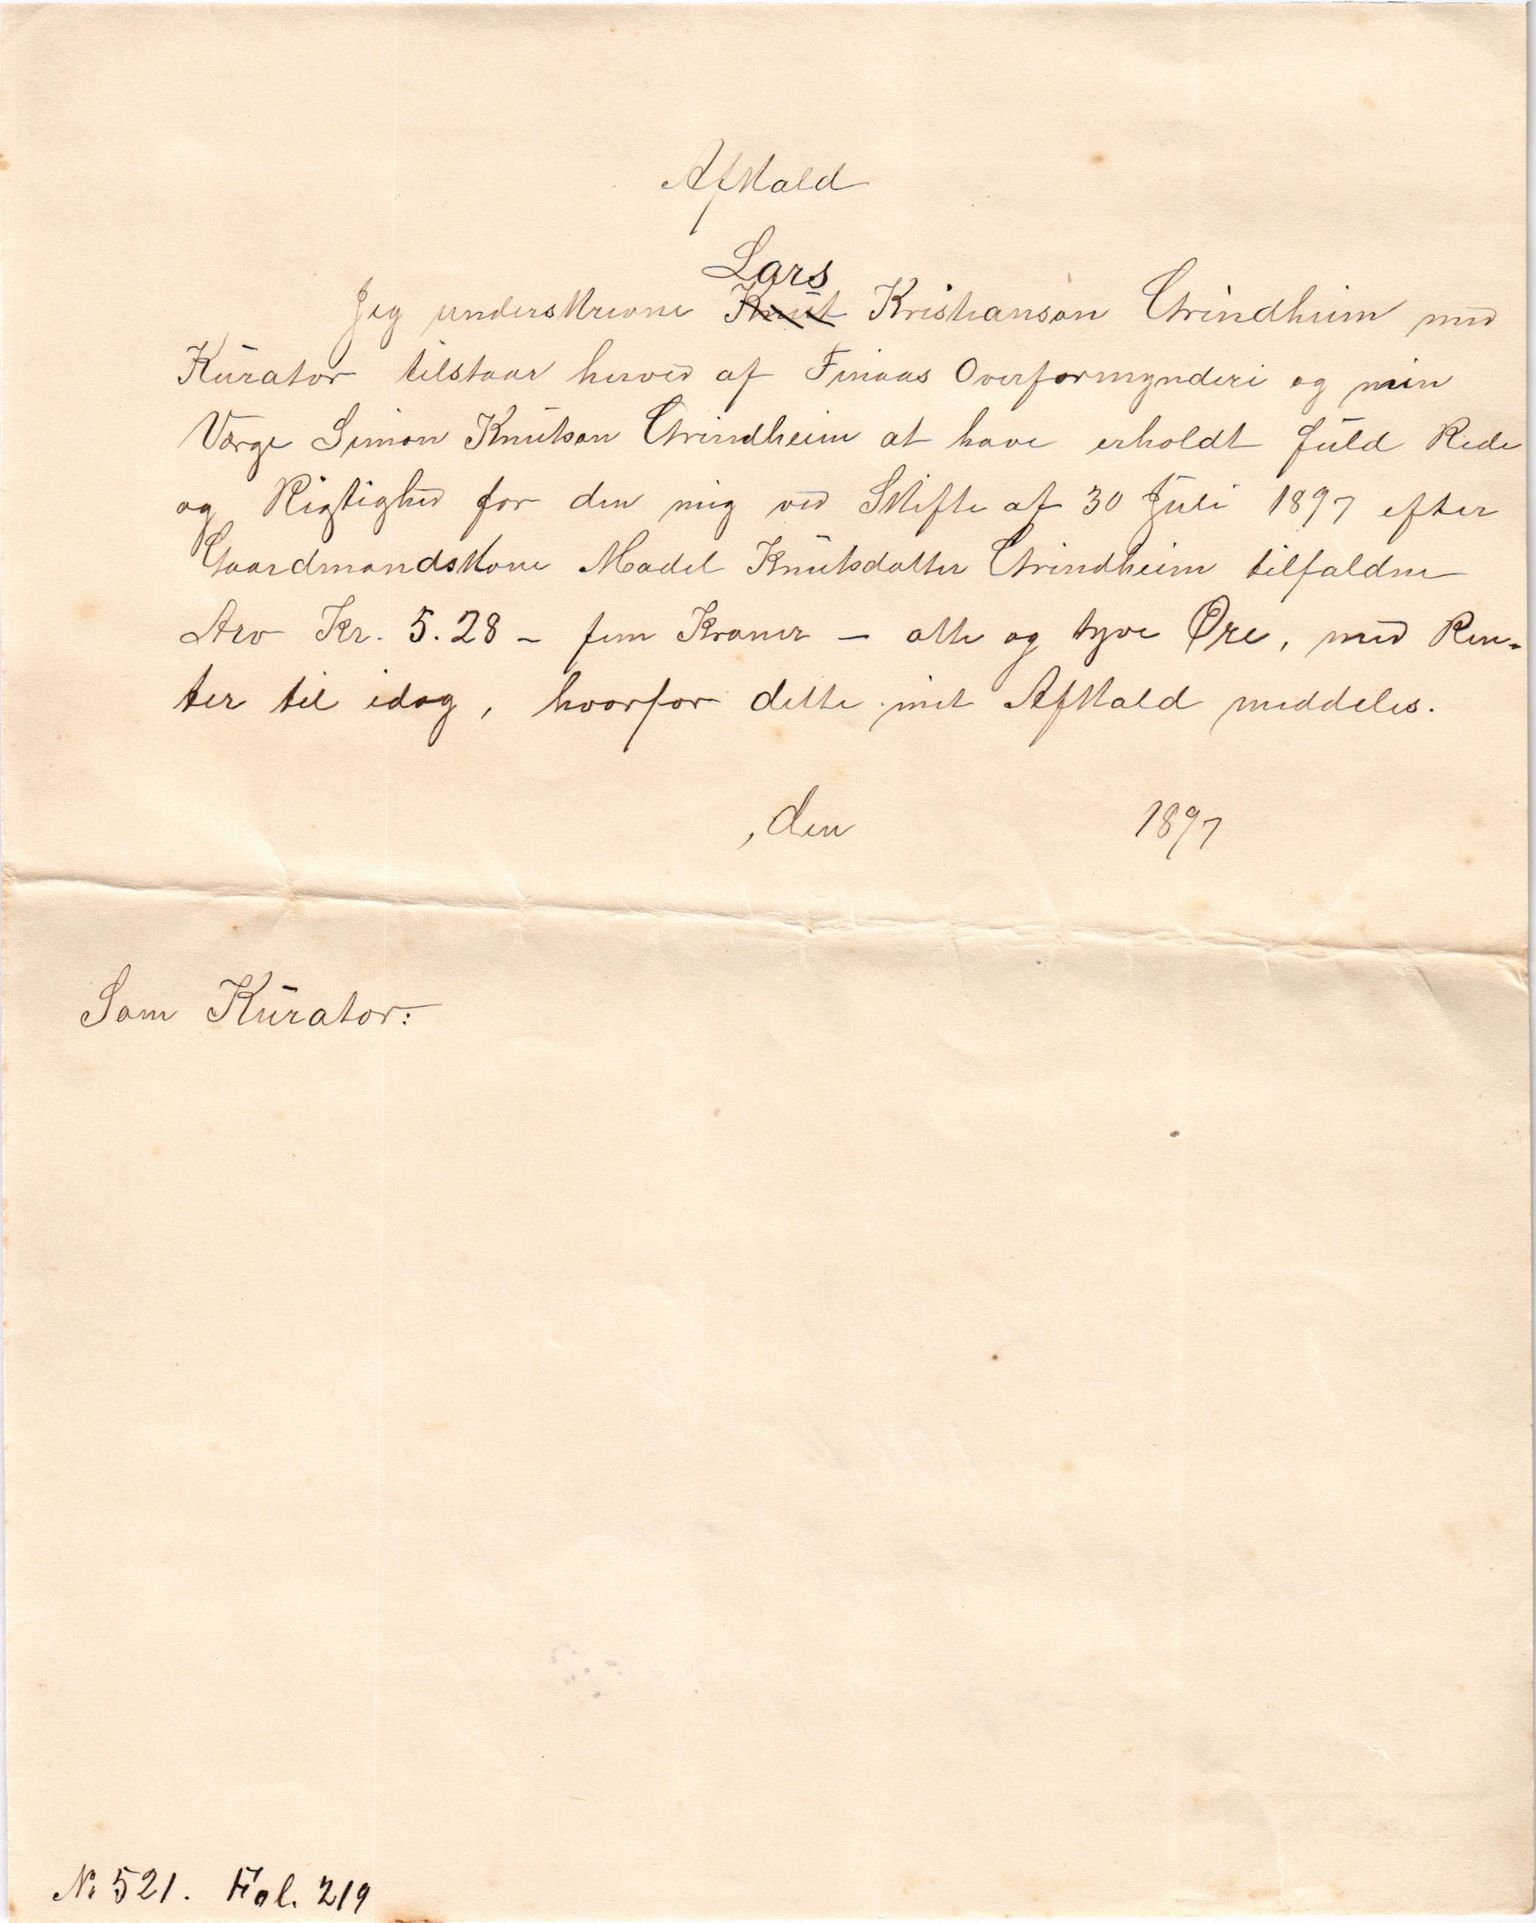 Afkald
Lars
Jeg underskrevne Knut Kristianson Grindheim med
Kurator tilstaar herved af Finaas Overformynderi og min
Værge Simon Knutson Grindheim at have erholdt fuld Rede
og Rigtighed for den mig ved Skifte af 30 Juli 1897 efter
Gaardmandskone Madel Knutsdatter Grindheim tilfaldne
Arv Kr. 5.28 - fem Kroner - otte og tyve Øre, med Ren-
ter til idag, hvorfor dette mit Afkald meddeles.
, den 1897
Som Kurator:
No 521. Fol. 219